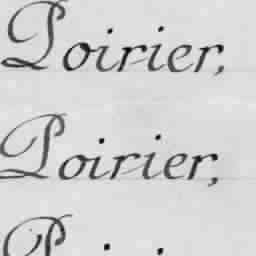 Poirier,
Poirier,